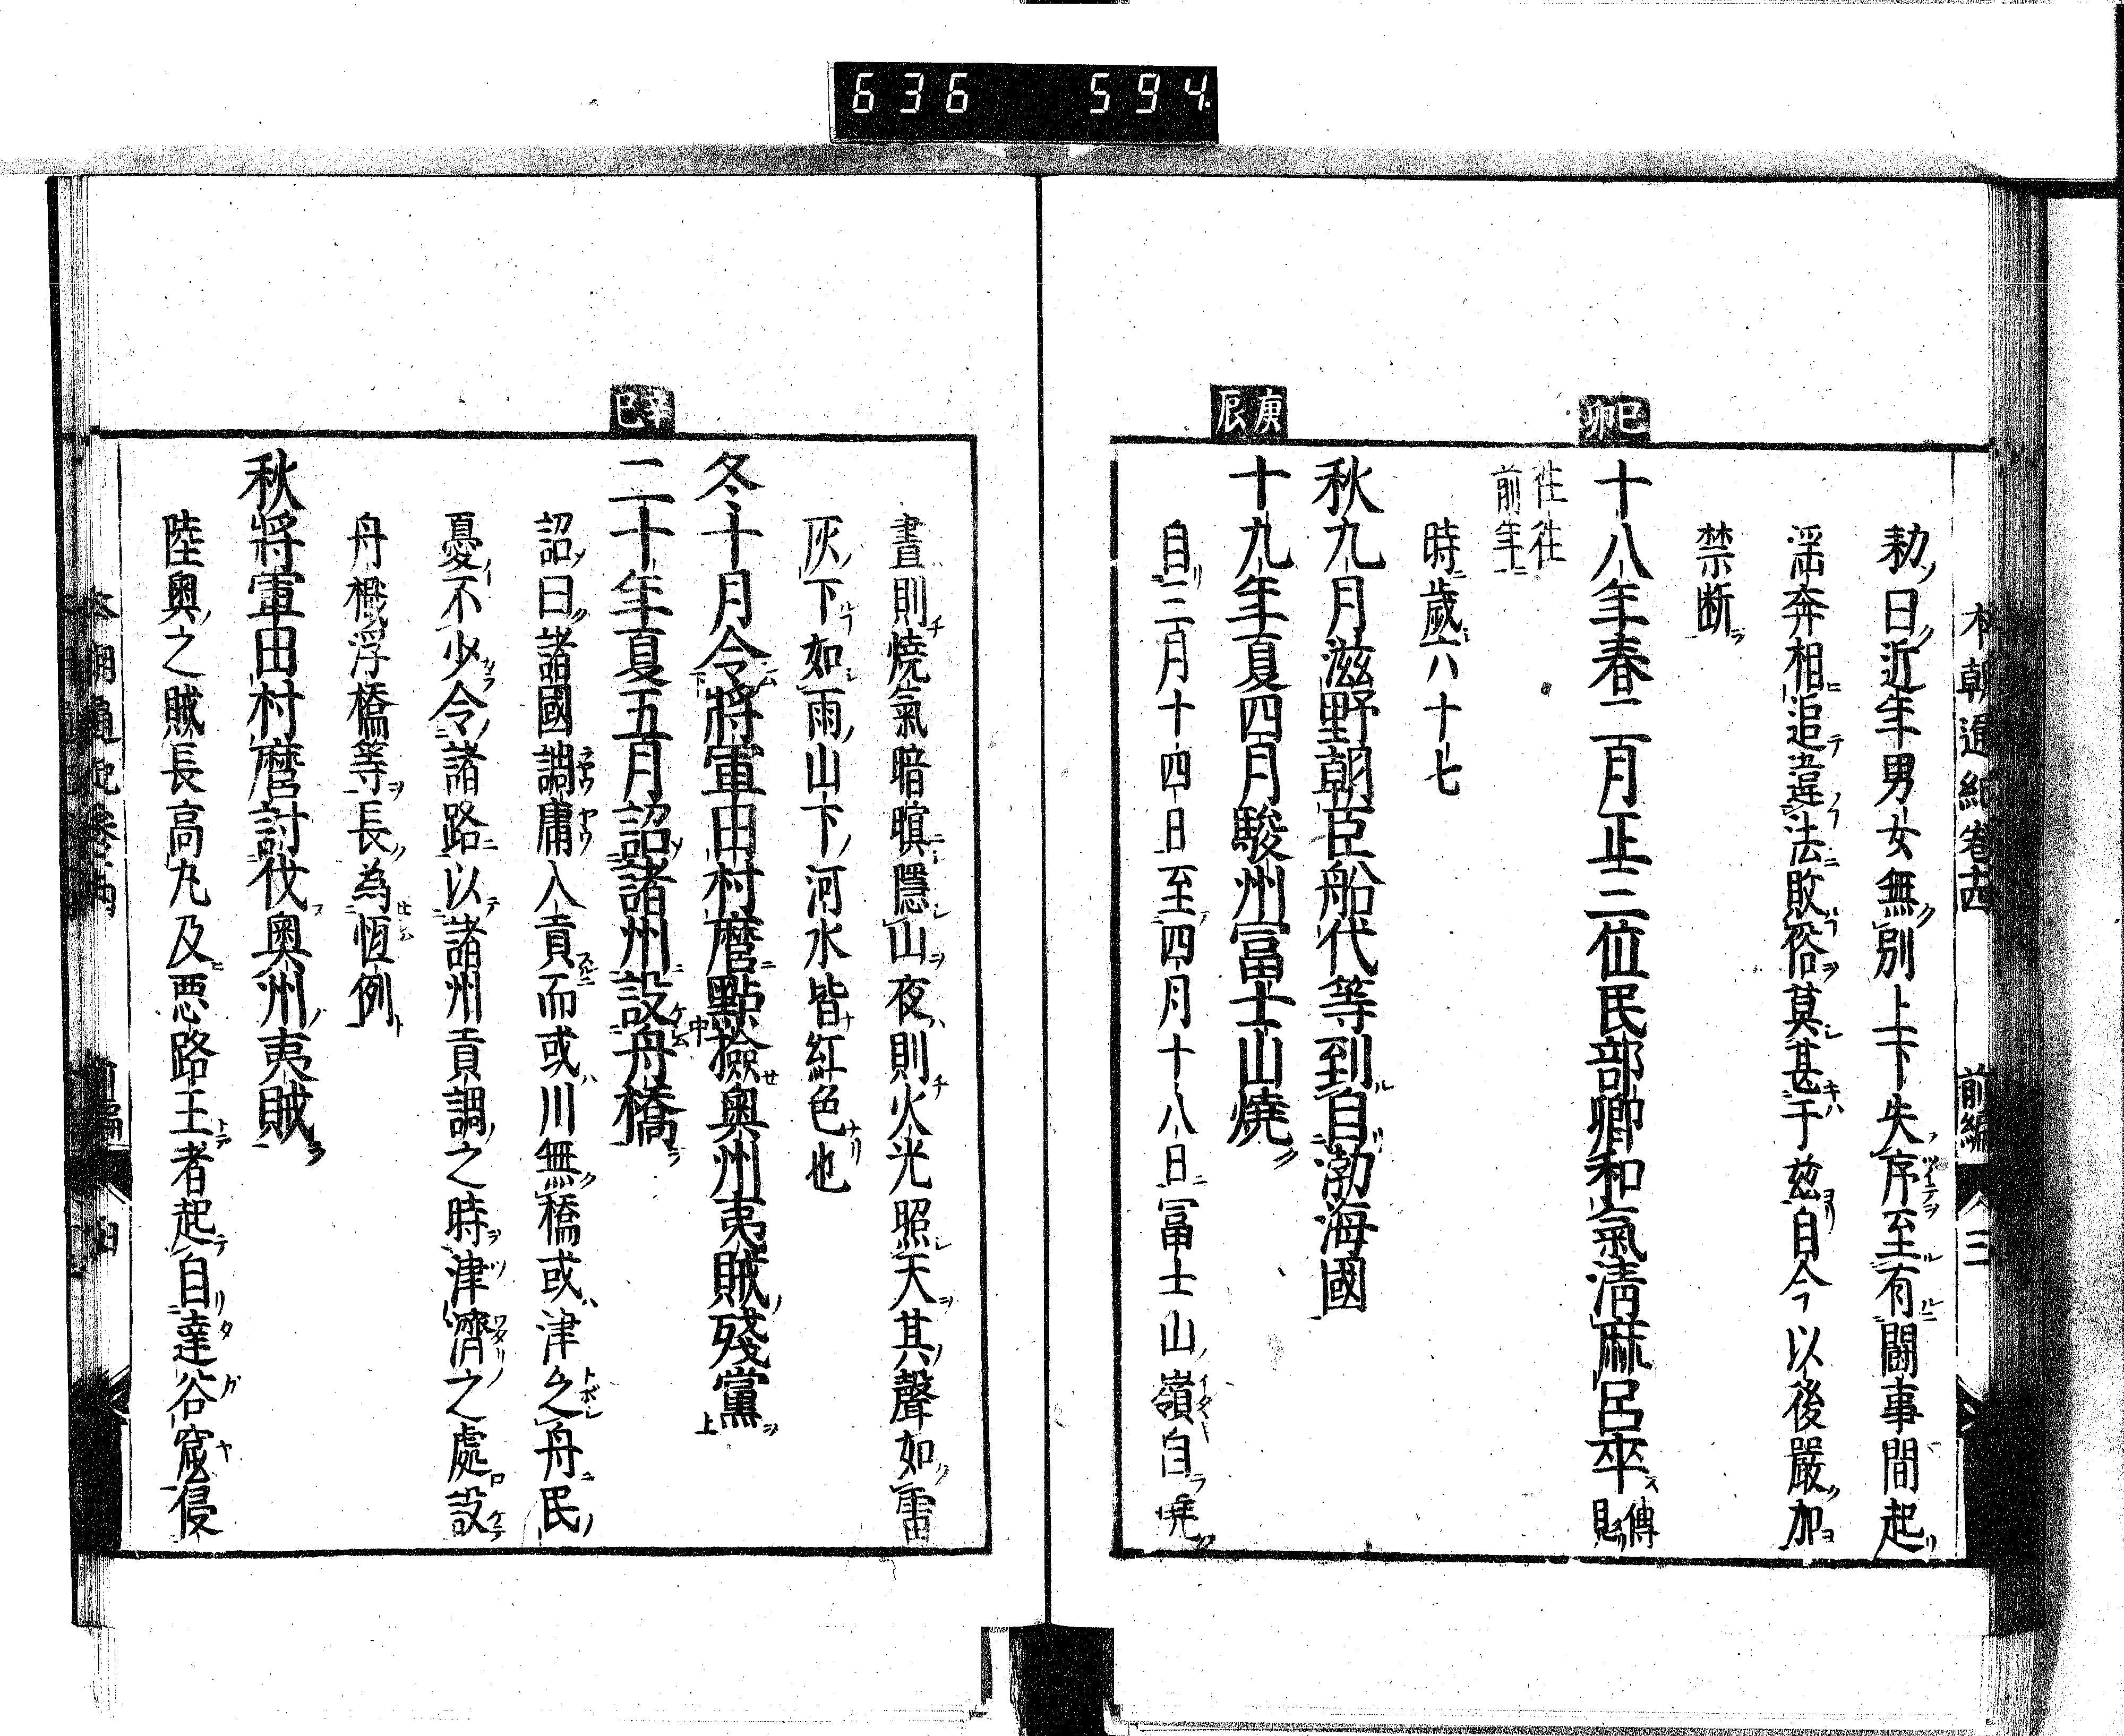 636 594
本朝通紀卷十四 前編 三
勅曰近年男女無別上下失序至有鬪事間起
淫奔相追違法敗俗莫甚于茲自今以後嚴加
禁断
己卯
十八年春二月正三位民部卿和氣淸麻呂卒傳則
徃徃前年
時歲六十七
秋九月滋野朝臣船代等到自渤海國
庚辰
十九年夏四月駿州富士山燒
自三月十四日至四月十八日冨士山嶺自燒
晝則燒氣暗暝隱山夜則火光照天其聲如雷
灰下如雨山下河水皆紅色也
冬十月令將軍田村麿點撿奥州夷賊殘黨
辛巳
二十年夏五月詔諸州設舟橋
詔曰諸國調庸入貢而或川無橋或津乏舟民
憂不少令諸路以諸州貢調之時津濟之處設
舟檝浮橋等長為恆例
秋將軍田村麿討伐奥州夷賊
陸奧之賊長高丸及悪路王者起自達谷窟侵